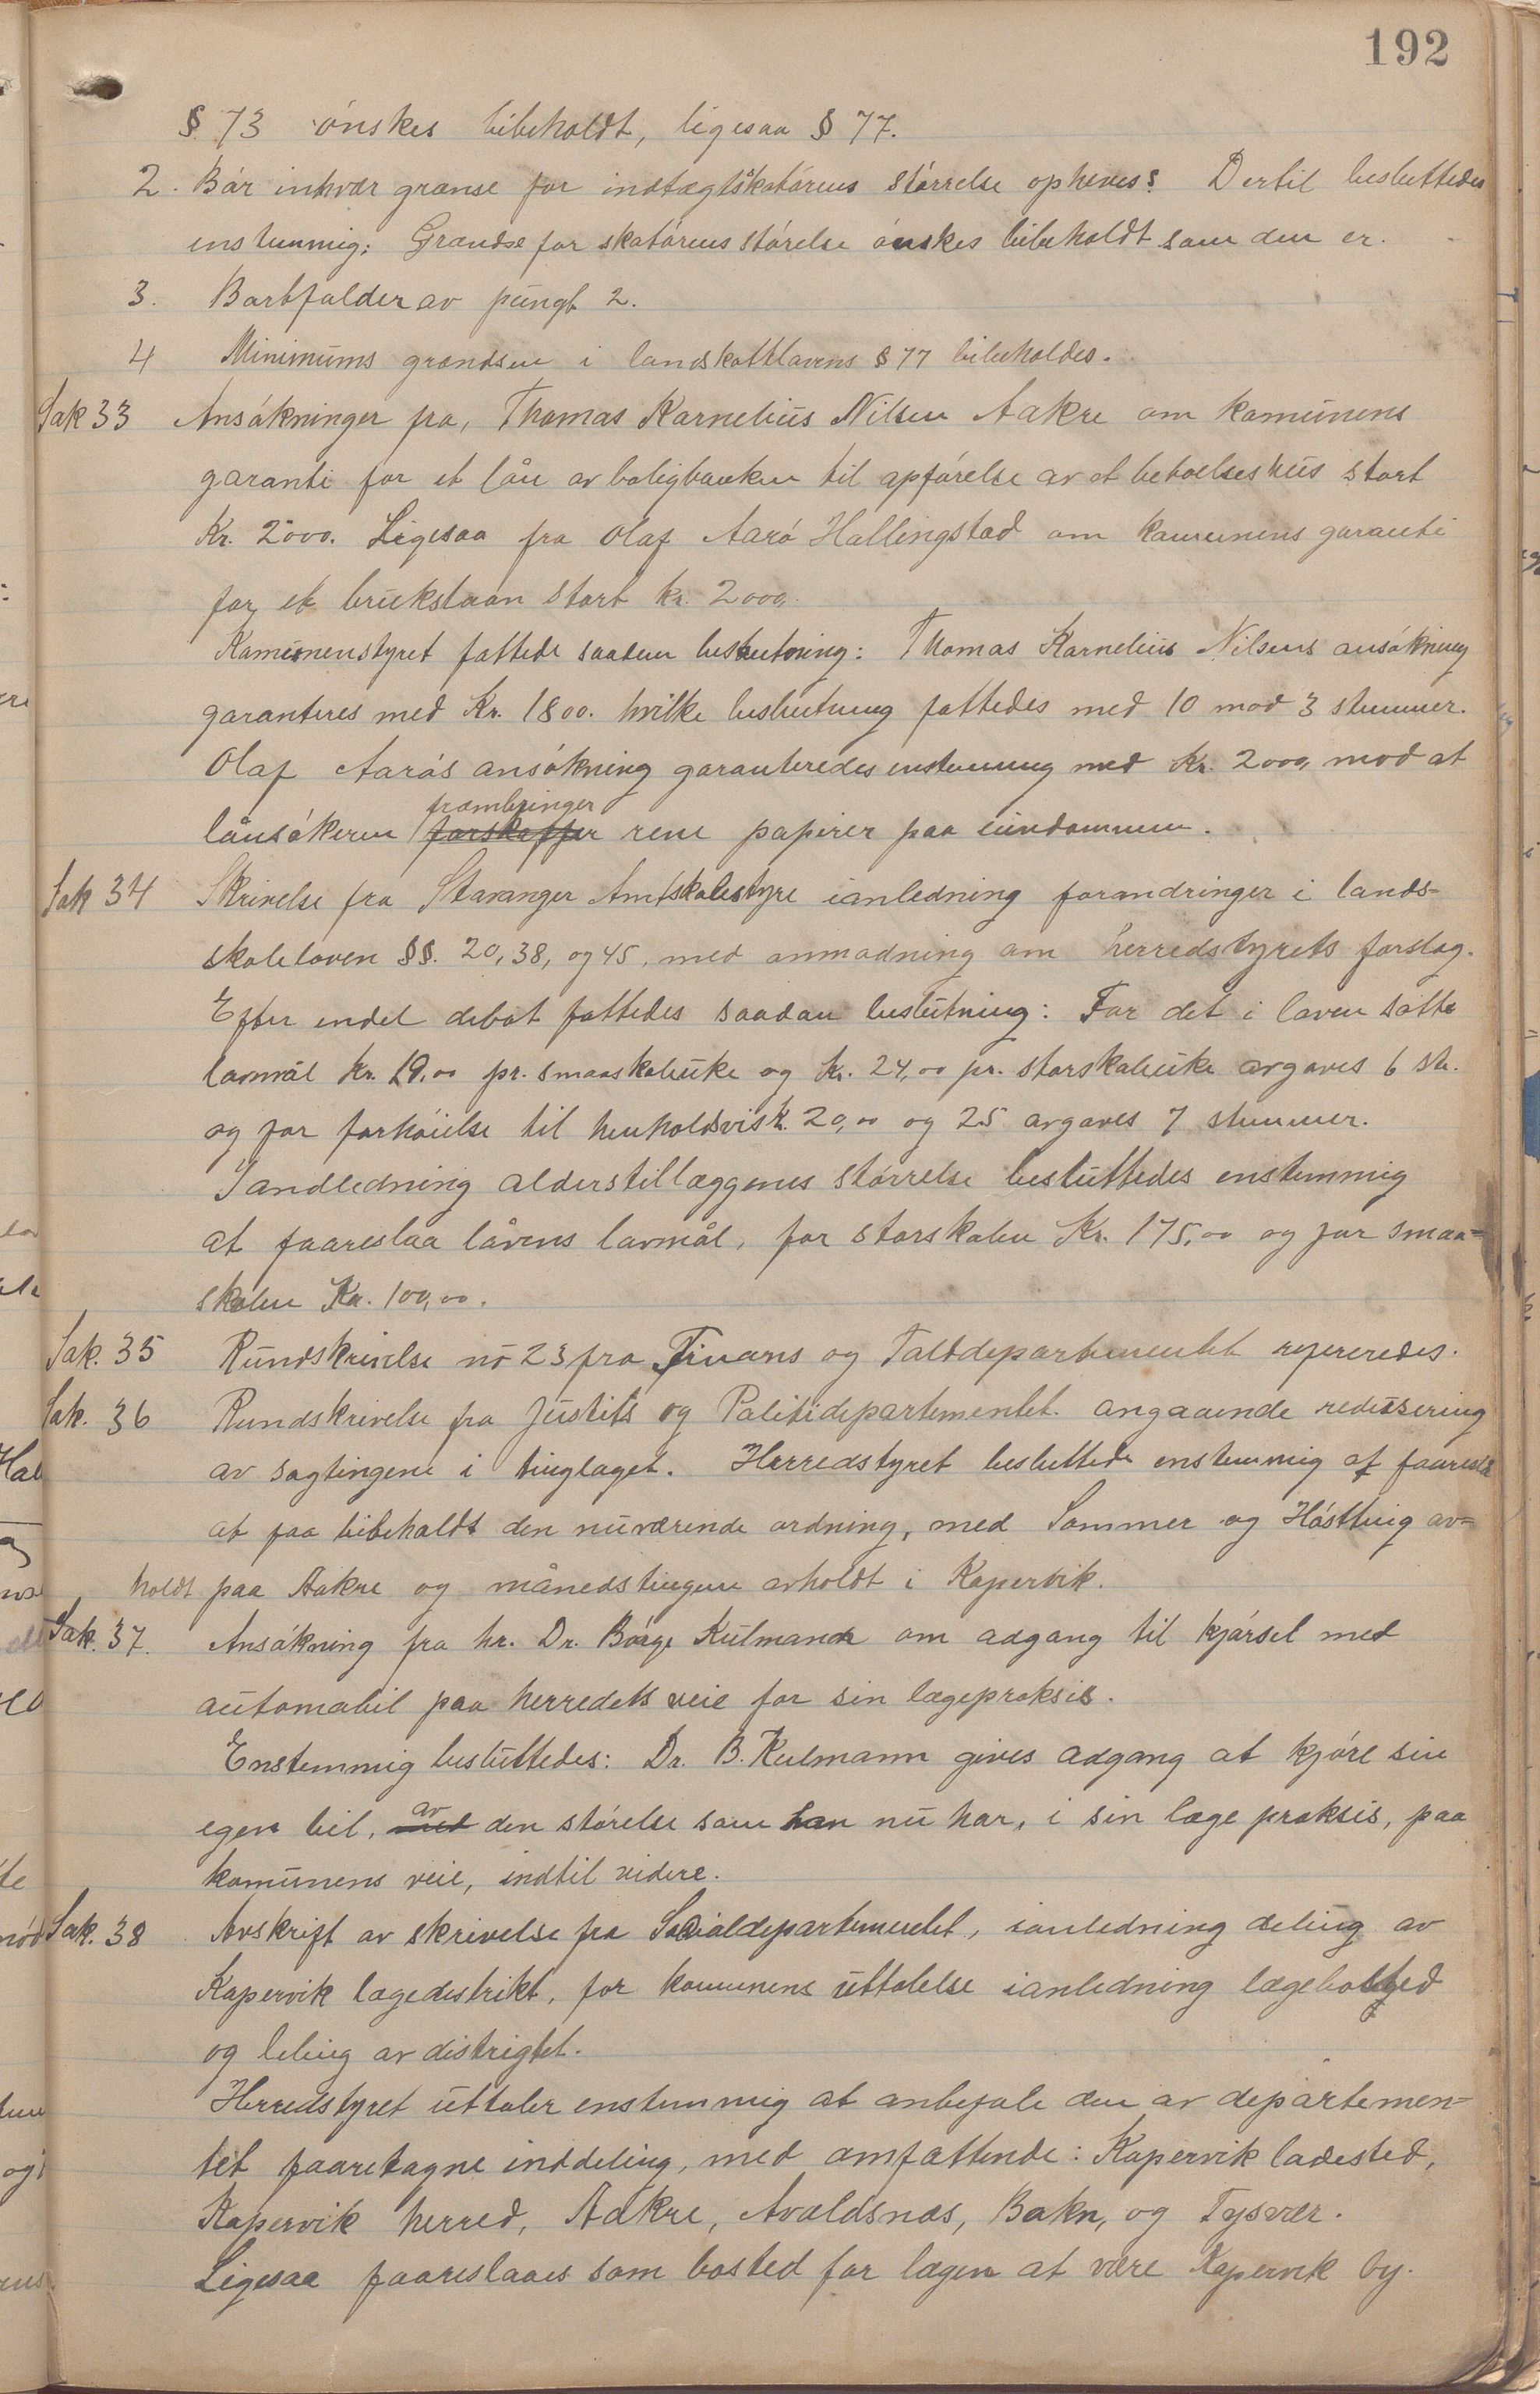 192
§ 73 ønskes bibeholdt, ligesaa § 77.
2. Bør inhvær grænse for indtægtskatørens størrelse opheves? Dertil besluttedes
enstemmig: Grændse for skatørens størelse ønskes bibeholdt som den er.
3. Bortfalder av pungt 2.
4 Minimums grændsen i landskattlavens § 77 bibeholdes.
Sak 33 Ansøkninger fra, Thomas Kornelius Nilsen Aakre om komunens
garanti for et lån av boligbanken til opførelse av et beboelseshus stort
Kr. 2000. Ligesaa fra Olaf Aarø Hallingstad om kommunens garanti
for et brukslaan stort kr. 2000,
Komunenstyret fattede saaden beslutning: Thomas Kornelius Nilsens ansøkning
garanteres med Kr. 1800. hvilke beslutning fattedes med 10 mod 3 stemmer.
Olaf Aarøs ansøkning garanteredes enstemmig med Kr. 2000, mod at
frambringer
lånsøkeren forskaffer rene papirer paa eiendommen.
Sak 34 Skrivelse fra Stavanger Amtskolestyre ianledning forandringer i lands-
skoleloven §§. 20, 38, og 45, med anmodning om herredstyrets forslag.
Efter endel debat fattedes saadan beslutning: For det i loven satte
lavmål kr. 19,00 pr. smaaskoleuke og kr. 24,00 pr. storskoleuke avgaves 6 st.
og for forhøielse til henholdsvis k. 20,00 og 25 avgaves 7 stemmer.
Iandledning alderstillæggenes størrelse besluttedes enstemmig
at faareslaa låvens lavmål, for storskolen Kr. 175,00 og for smaa-
skolen Kr. 100,00.
Sak. 35 Rundskrivelse no 23 fra Finans og Tolddepartementet refereredes.
Sak. 36 Rundskrivelse fra Justits og Politidepartementet angaaende redusering
av sagtingene i tinglaget. Herredstyret besluttede enstemmig at faareslå
at faa bibeholdt den nuværende ordning, med Sommer og Høstting av-
holdt paa Aakre og månedstingene avholdt i Kopervik.
Sak. 37. Ansøkning fra hr. Dr. Børge Kulmann om adgang til kjørsel med
automobil paa herredets veie for sin lægepraksis.
Enstemmig besluttedes: Dr. B. Kulmann gives adgang at kjøre sin
av
egen bil, med den størelse som han nu har, i sin læge praksis, paa
komunens veie, indtil videre.
Sak. 38 Avskrift av skrivelse fra Socialdepartementet, ianledning deling av
Kopervik lægedistrikt, for kommunens uttalelse ianledning lægebosted
og deling av distrigtet.
Herredstyret uttaler enstemmig at anbefale den av departemen-
tet faaretagne inddeling, med omfattende: Kopervik ladested,
Kopervik herred, Aakre, Avaldsnæs, Bokn, og Tysvær.
Ligesaa faareslaaes som bosted for lægen at være Kopervik by.